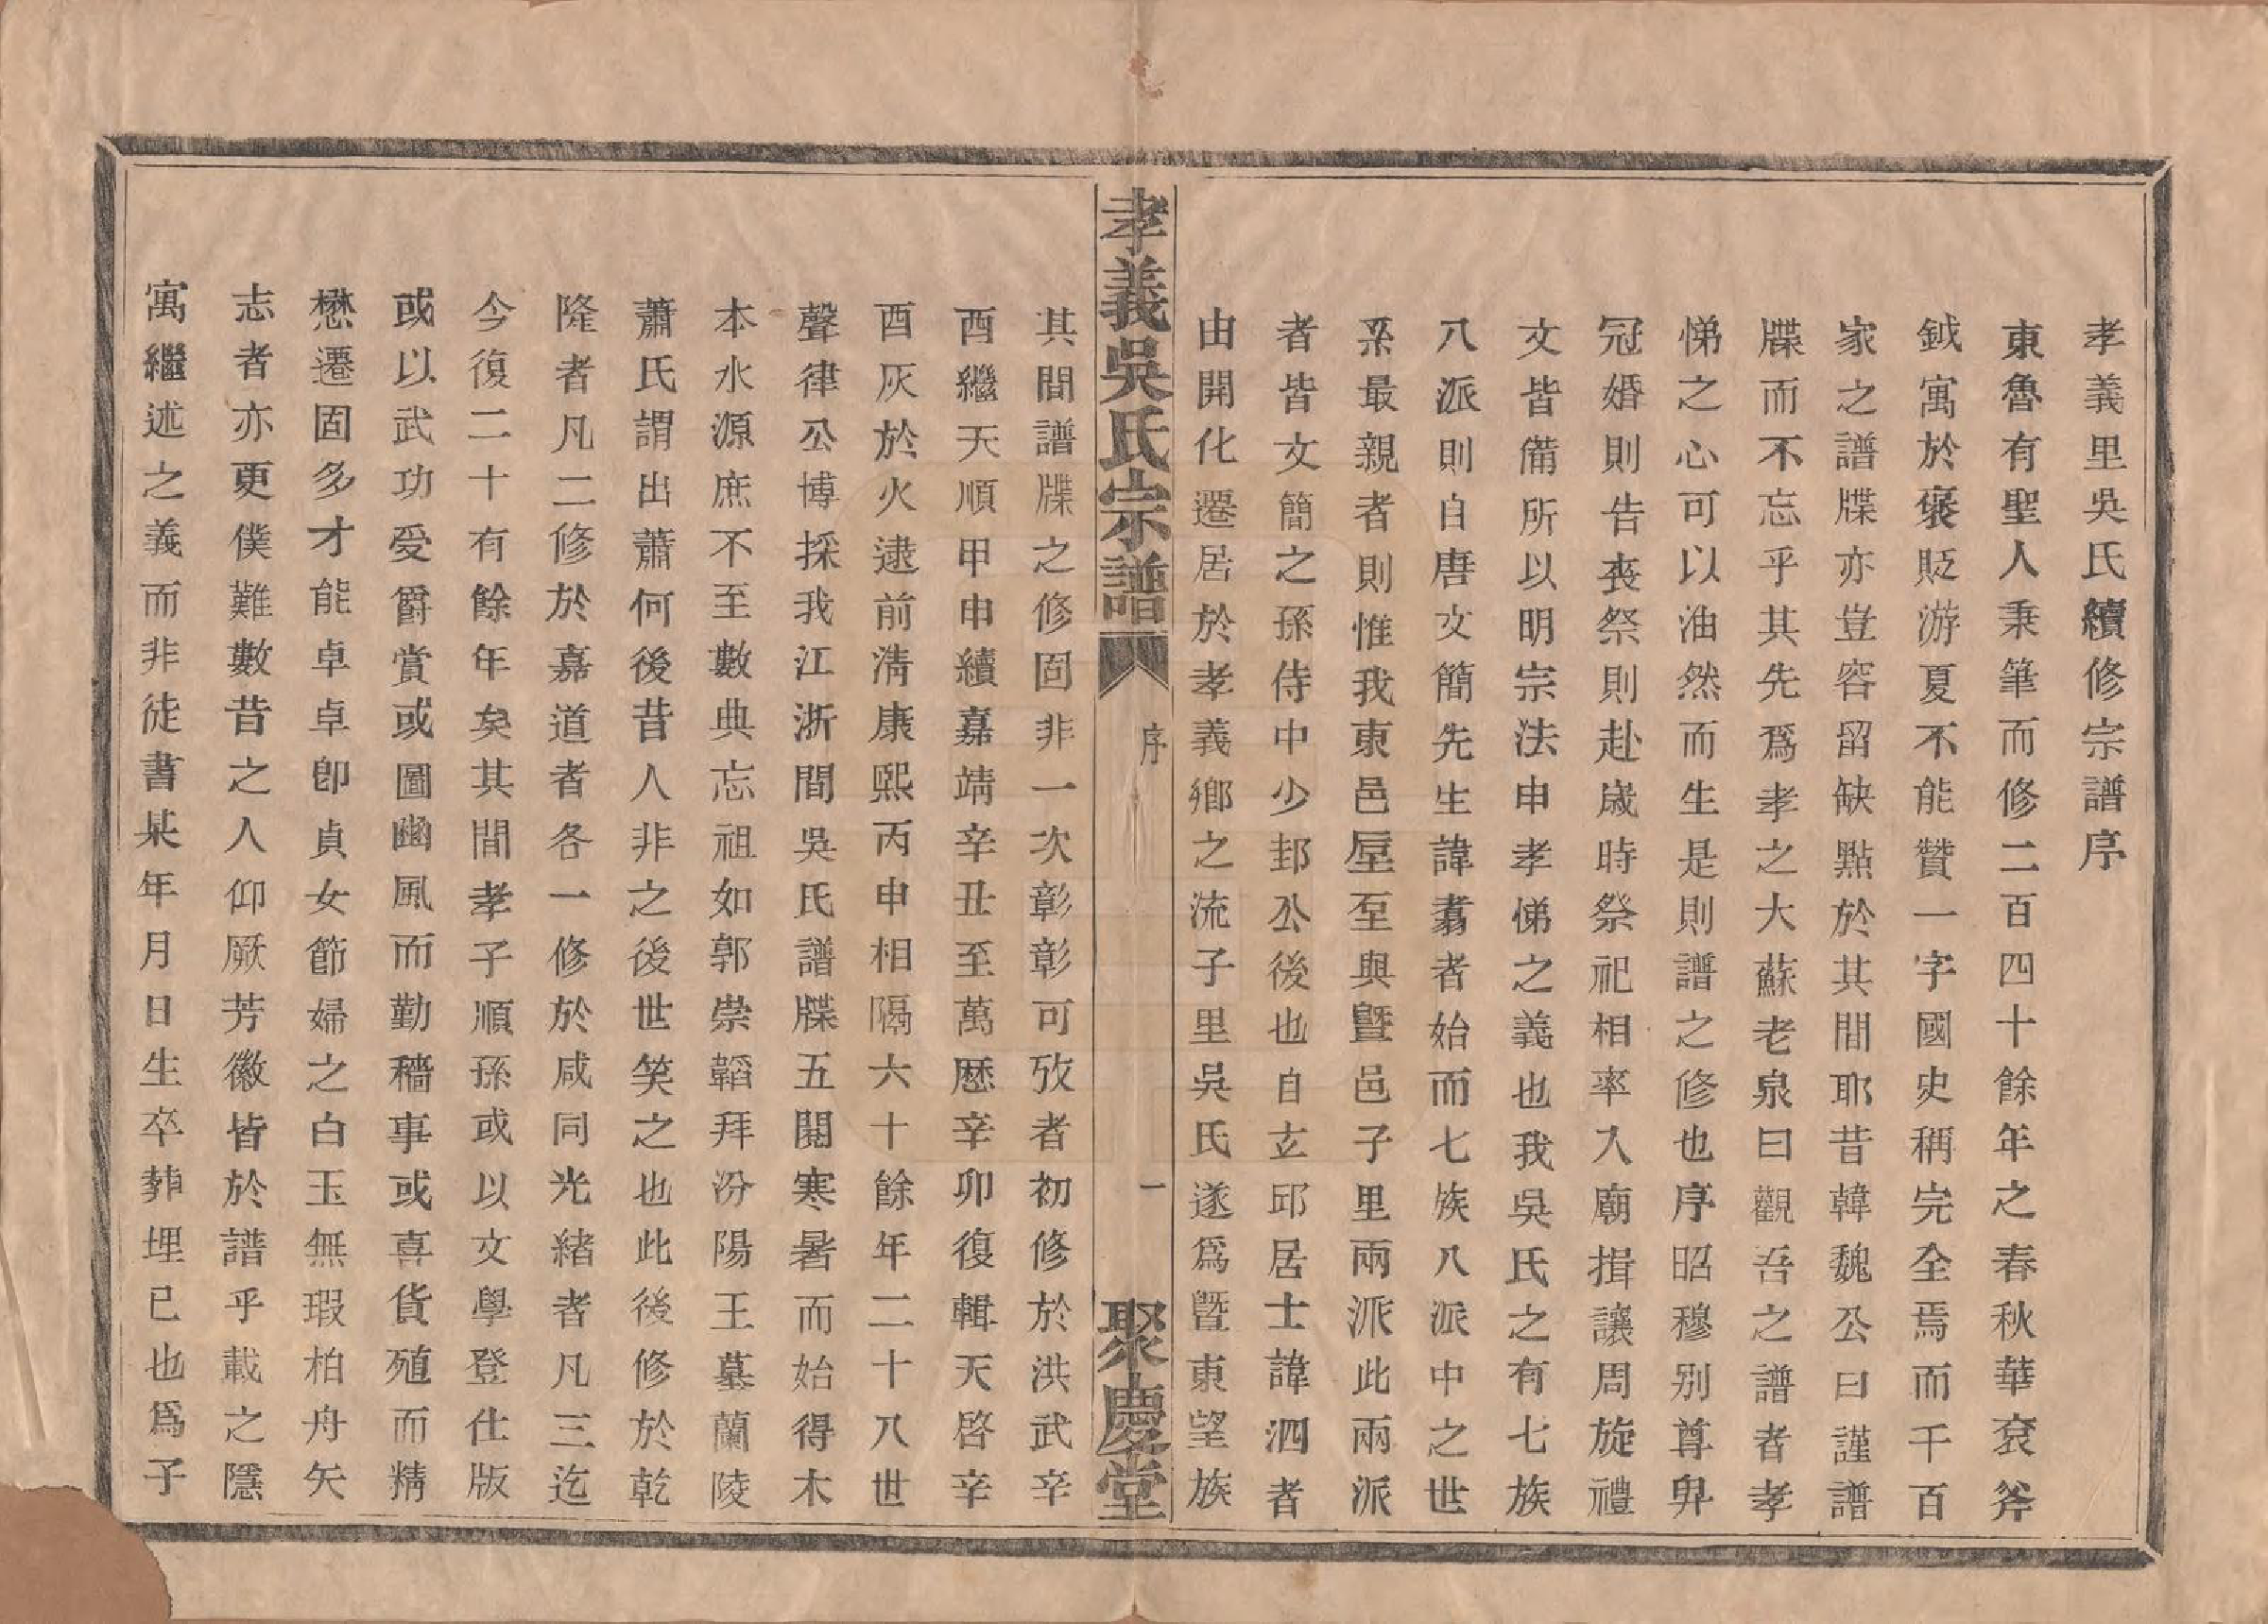 孝義里吳氏續修宗譜序
東魯有聖人秉筆而修二百四十餘年之春秋華袞斧
鉞寓於褒貶游夏不能贊一字國史稱完全焉而千百
家之譜牒亦豈容留缺點於其間耶昔韓魏公曰謹譜
牒而不忘乎其先爲孝之大蘇老泉曰觀吾之譜者孝
悌之心可以油然而生是則譜之修也序昭穆别尊卑
冠婚則告喪祭則赴歲時祭祀相率入廟揖讓周旋禮
文皆備所以明宗法申孝悌之義也我吳氏之有七族
八派則自唐文簡先生諱翥者始而七族八派中之世
系最親者則惟我東邑厔至與暨邑子里兩派此兩派
者皆文簡之孫侍中少邽公後也自玄邱居士諱泗者
由開化遷居於孝義鄉之流子里吳氏遂爲暨東望族
孝義吳氏宗譜
序
一
聚慶堂
其間譜牒之修固非一次彰彰可攷者初修於洪武辛
酉繼天順甲申續嘉靖辛丑至萬歷辛卯復輯天啓辛
酉灰於火逮前淸康熙丙申相隔六十餘年二十八世
聲律公博採我江浙間吳氏譜牒五閱寒暑而始得木
本水源庶不至數典忘祖如郭崇韜拜汾陽王墓蘭陵
蕭氏謂出蕭何後昔人非之後世笑之也此後修於乾
隆者凡二修於嘉道者各一修於咸同光緒者凡三迄
今復二十有餘年矣其間孝子順孫或以文學登仕版
或以武功受爵賞或圖豳風而勤穡事或喜貨殖而精
懋遷固多才能卓卓卽貞女節婦之白玉無瑕柏舟矢
志者亦更僕難數昔之人仰厥芳徽皆於譜乎載之隱
寓繼述之義而非徒書某年月日生卒葬埋已也爲子